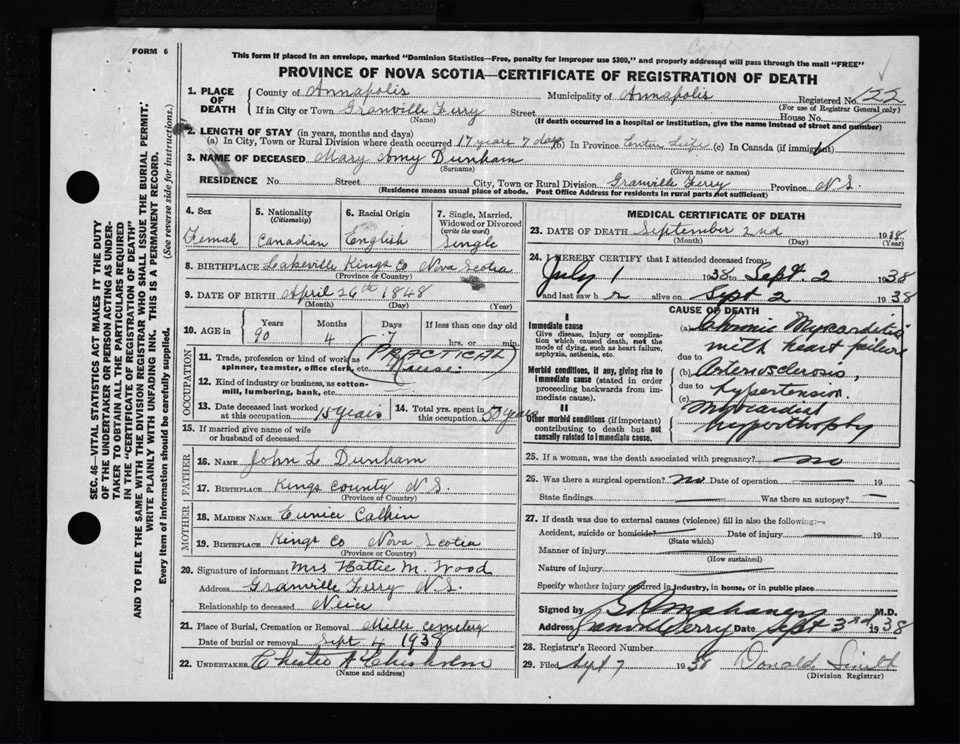 FORM 6
Copy
This form if placed in an envelope, marked "Dominion Statistics—Free, penalty for improper use $300," and properly addressed will pass through the mail "FREE"
PROVINCE OF NOVA SCOTIA—CERTIFICATE OF REGISTRATION OF DEATH
SEC. 46—VITAL STATISTICS ACT MAKES IT THE DUTY
OF THE UNDERTAKER OR PERSON ACTING AS UNDER-
TAKER TO OBTAIN ALL THE PARTICULARS REQUIRED
IN THE "CERTIFICATE OF REGISTRATION OF DEATH"
AND TO FILE THE SAME WITH THE DIVISION REGISTRAR WHO SHALL ISSUE THE BURIAL PERMIT.
WRITE PLAINLY WITH UNFADING INK. THIS IS A PERMANENT RECORD.
Every item of information should be carefully supplied. (See reverse side for instructions.)
1. PLACE OF DEATH County of Annapolis Municipality of Annapolis Registered No. 122
(For use of Registrar General only)
If in City or Town Granville Ferry Street House No.
(Name) (If death occurred in a hospital or institution, give the name instead of street and number)
2. LENGTH OF STAY (in years, months and days)
(a) In City, Town or Rural Division where death occurred 17 years 7 days (b) In Province Entire Life (c) In Canada (if immigrant)
3. NAME OF DECEASED Mary Amy Dunham
(Surname) (Given name or names)
RESIDENCE No. Street City, Town or Rural Division Granville Ferry Province N.S.
(Residence means usual place of abode. Post Office Address for residents in rural parts not sufficient)
4. Sex 5. Nationality (Citizenship) 6. Racial Origin 7. Single, Married, Widowed or Divorced (write the word)
Female Canadian English Single
8. BIRTHPLACE Lakeville Kings Co Nova Scotia
(Province or Country)
9. DATE OF BIRTH April 26th 1848
(Month) (Day) (Year)
10. AGE in Years Months Days If less than one day old
90 4 7 hrs. or min.
OCCUPATION
11. Trade, profession or kind of work as spinner, teamster, office clerk, etc. (PRACTICAL Nurse)
12. Kind of industry or business, as cotton-mill, lumbering, bank, etc.
13. Date deceased last worked at this occupation 15 years 14. Total yrs. spent in this occupation 50 years
15. If married give name of wife or husband of deceased
FATHER
16. NAME John L Dunham
17. BIRTHPLACE Kings County N.S.
(Province or Country)
MOTHER
18. MAIDEN NAME Eunice Calkin
19. BIRTHPLACE Kings Co Nova Scotia
(Province or Country)
20. Signature of informant Mrs Hattie M. Wood
Address Granville Ferry N.S.
Relationship to deceased Neice
21. Place of Burial, Cremation or Removal Mills Cemetery
Date of burial or removal Sept 4 1938
22. UNDERTAKER Chester A Chisholm
(Name and address)
MEDICAL CERTIFICATE OF DEATH
23. DATE OF DEATH September 2nd 1938
(Month) (Day) (Year)
24. I HEREBY CERTIFY that I attended deceased from:
July 1 1938 to Sept. 2 1938
and last saw h er alive on Sept 2 1938
CAUSE OF DEATH
I
Immediate cause
Give disease, injury or complication which caused death, not the mode of dying, such as heart failure, asphyxia, asthenia, etc.
(a) Chronic Myocarditis
with heart failure
due to
Morbid conditions, if any, giving rise to immediate cause (stated in order proceeding backwards from immediate cause).
(b) Arteriosclerosis,
due to hypertension.
(c)
II
Other morbid conditions (if important) contributing to death but not causally related to immediate cause.
Myocardial
hyperthophy
25. If a woman, was the death associated with pregnancy? no
26. Was there a surgical operation? No Date of operation — 19 —
State findings — Was there an autopsy? —
27. If death was due to external causes (violence) fill in also the following:—
Accident, suicide or homicide? Date of injury 19
(State which)
Manner of injury
(How sustained)
Nature of injury
Specify whether injury occurred in industry, in home, or in public place
Signed by M.D.
Address Granville Ferry Date Sept 3rd 1938
28. Registrar's Record Number
29. Filed Sept 7 1938 Donald Smith
(Division Registrar)